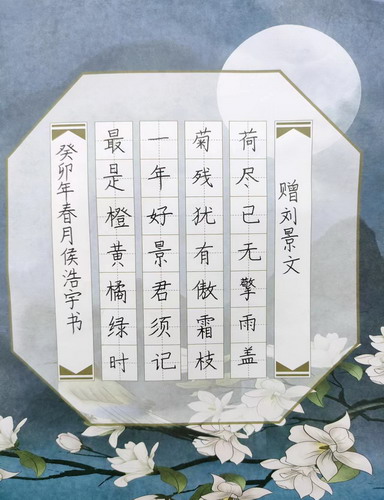 赠刘景文
荷尽已无擎雨盖
菊残犹有傲霜枝
一年好景君须记
最是橙黄橘绿时
癸卯年春月侯浩宇书